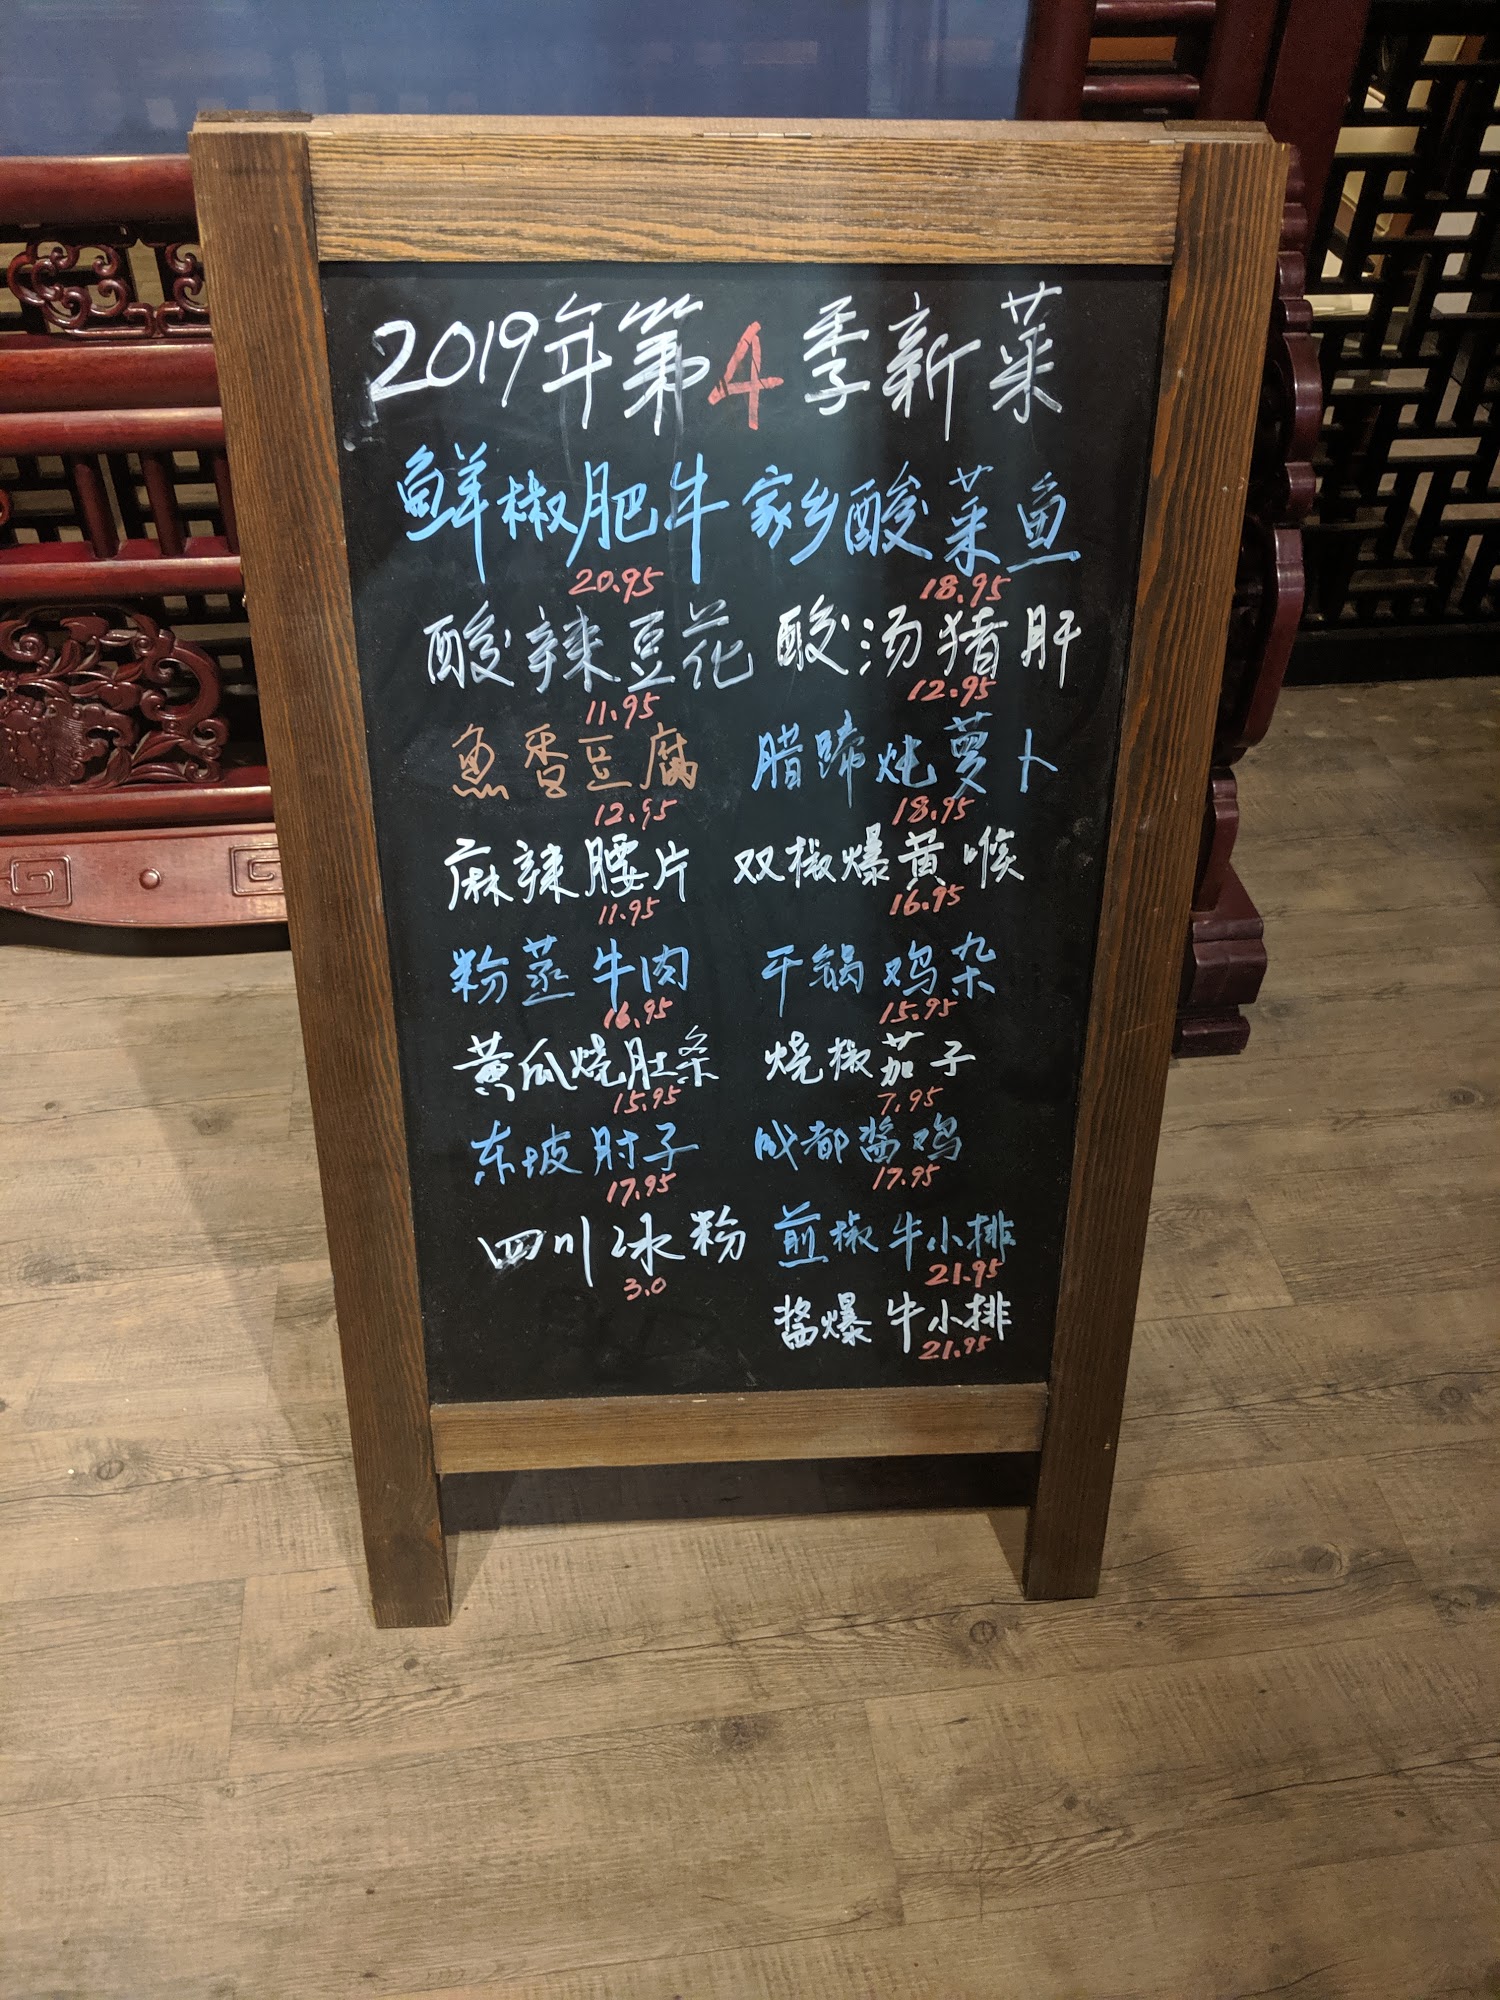 2019年第4季新菜
鲜椒肥牛 家乡酸菜鱼
20.95 18.95
酸辣豆花 酸汤猪肝
11.95 12.95
魚香豆腐 腊蹄炖萝卜
12.95 18.95
麻辣腰片 双椒爆黄喉
11.95 16.95
粉蒸牛肉 干锅鸡杂
16.95 15.95
黄瓜烧肚条 烧椒茄子
15.95 7.95
东坡肘子 成都酱鸡
17.95 17.95
四川冰粉 煎椒牛小排
3.0 21.95
酱爆牛小排
21.95